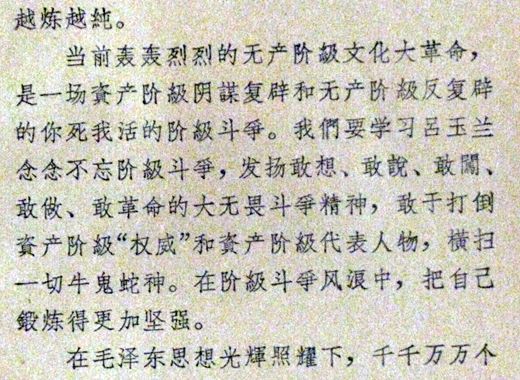 越炼越純。
当前轰轰烈烈的无产阶級文化大革命，
是一场資产阶級阴謀复辟和无产阶級反复辟
的你死我活的阶級斗爭。我們要学习呂玉兰
念念不忘阶級斗爭，发扬敢想、敢說、敢闖、
敢做、敢革命的大无畏斗爭精神，敢于打倒
資产阶級“权威”和資产阶級代表人物，橫扫
一切牛鬼蛇神。在阶級斗爭风浪中，把自己
鍛炼得更加坚强。
在毛泽东思想光輝照耀下，千千万万个